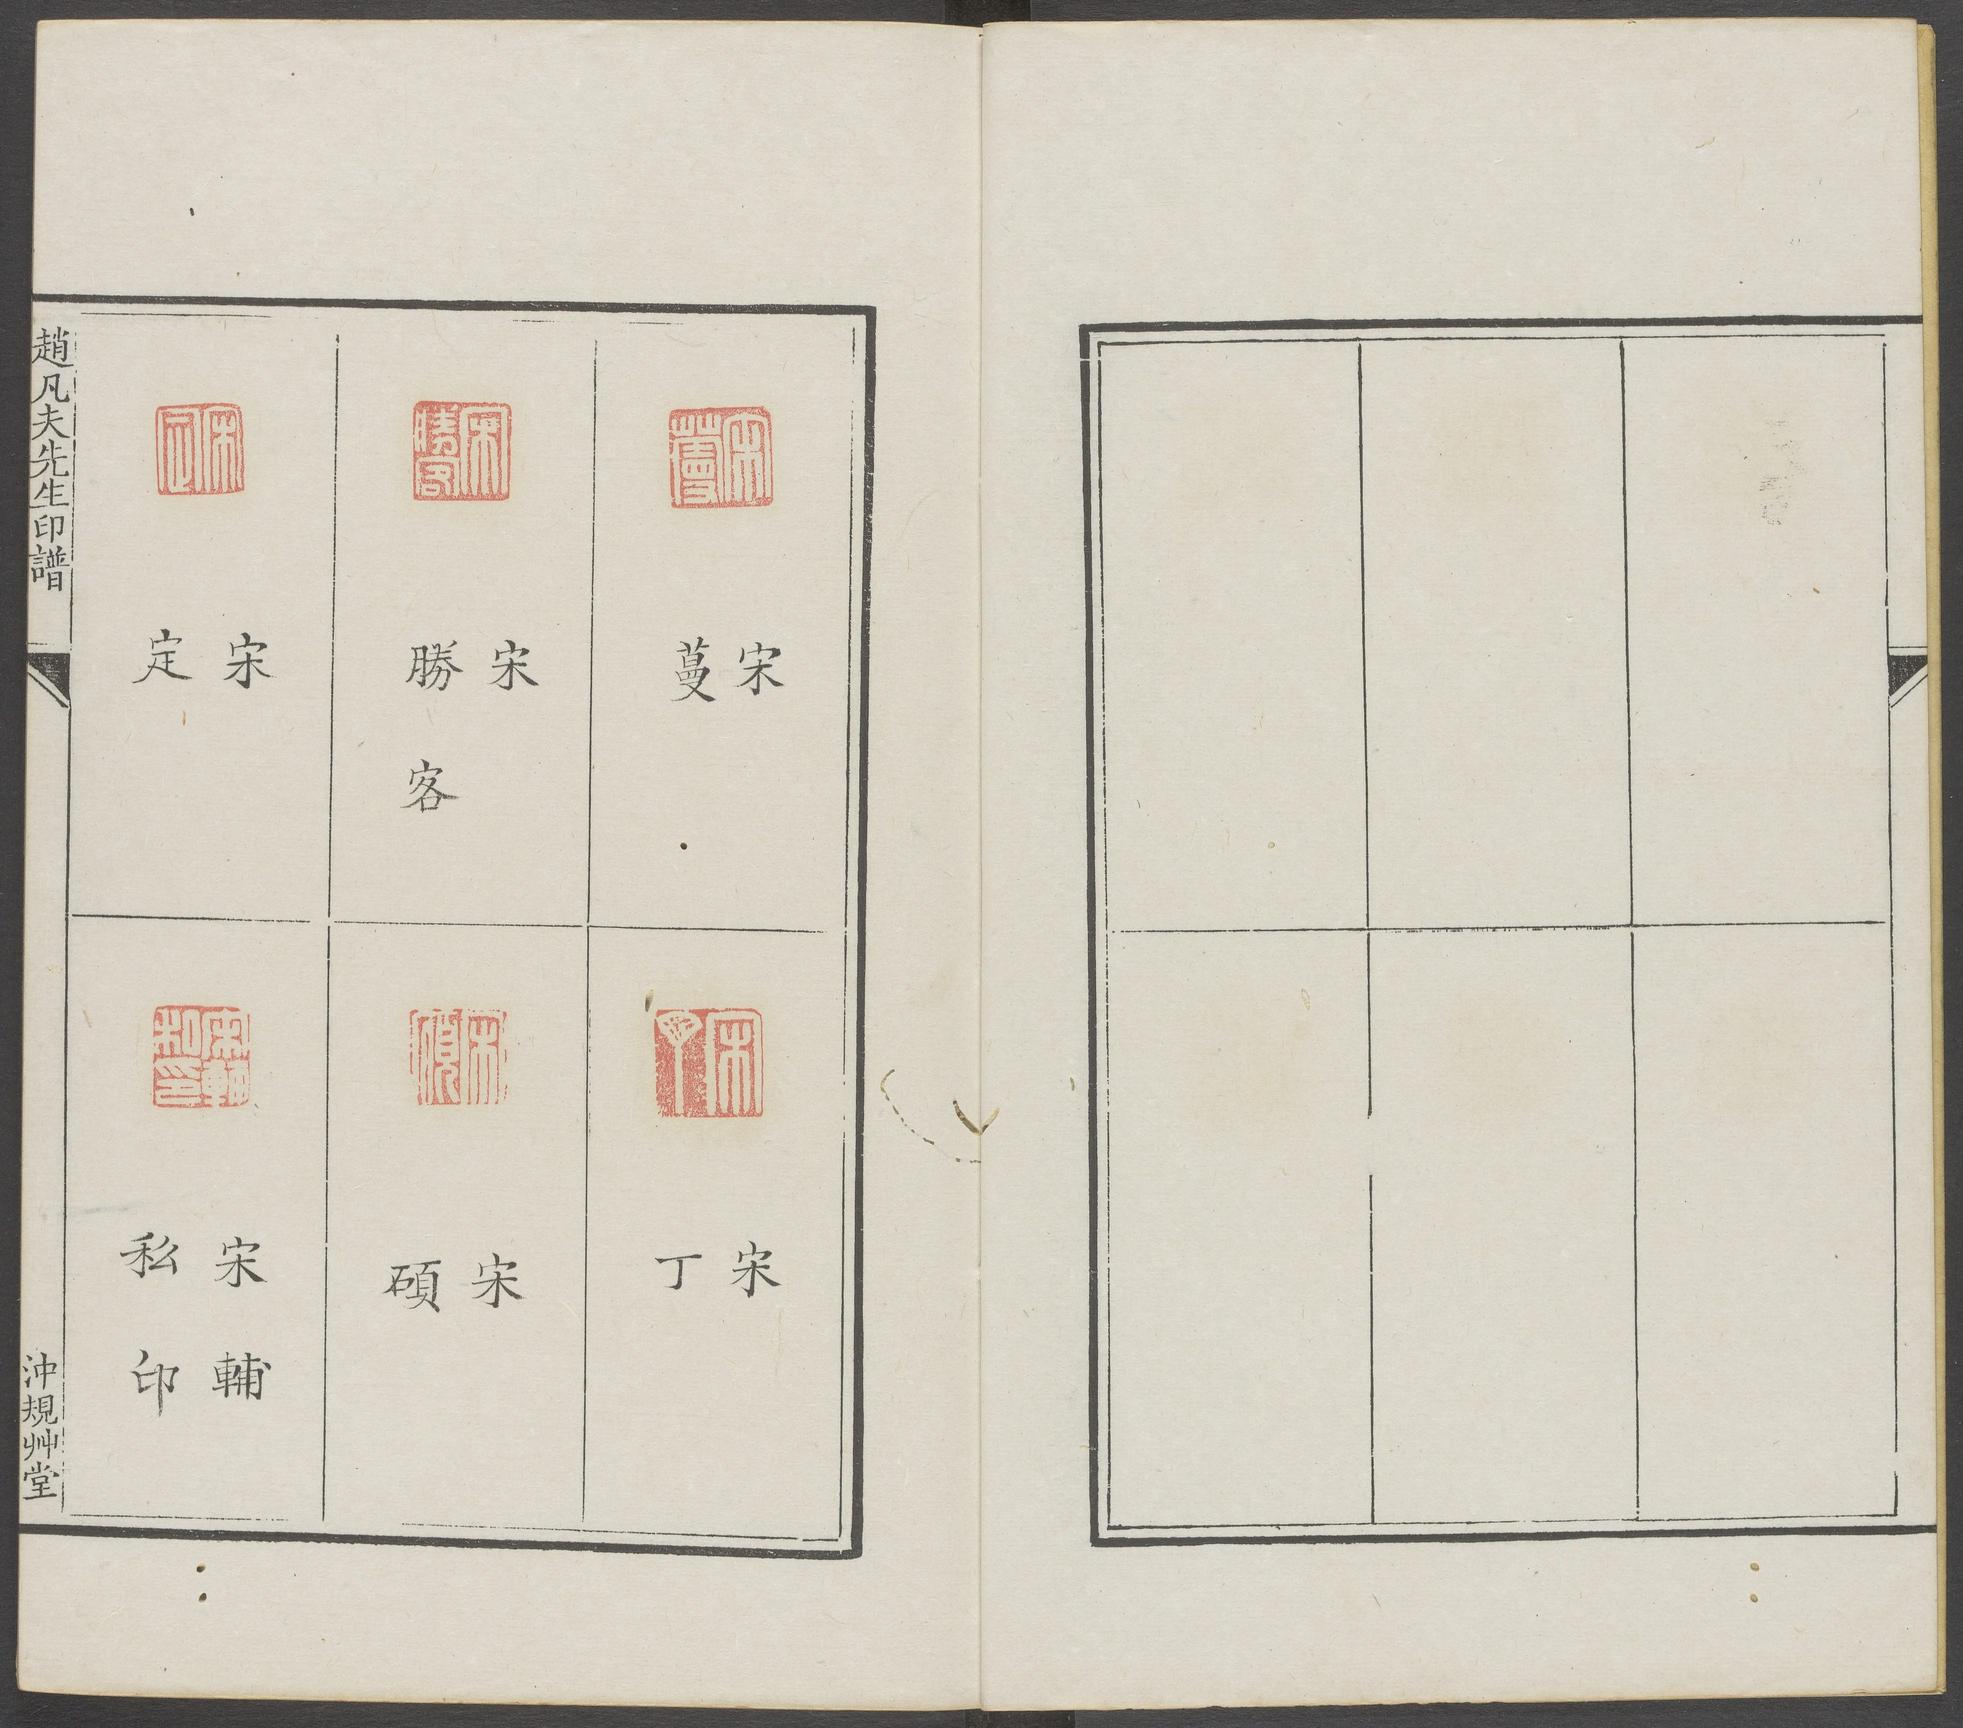 宋
蔓
宋
勝客
宋
定
宋
丁
宋
碩
宋輔
私印
趙凡夫先生印譜
沖規艸堂